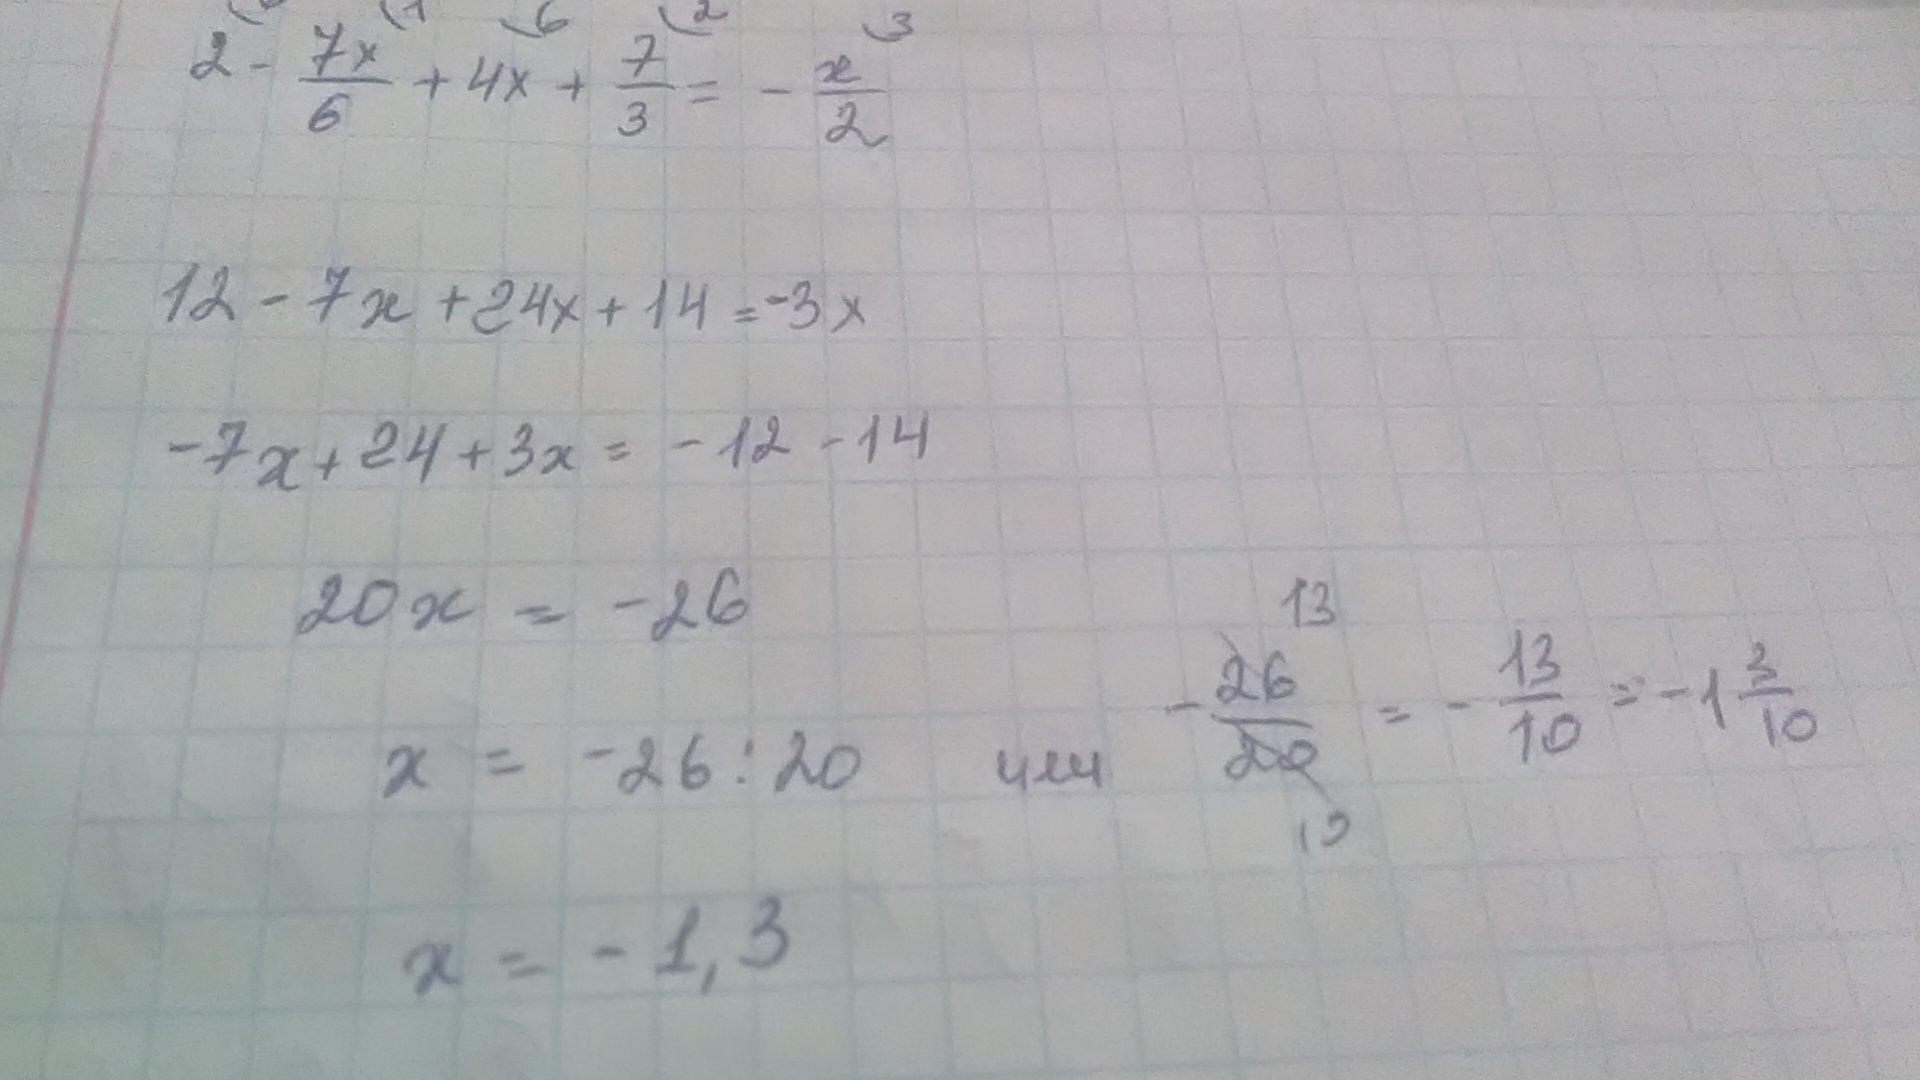 6 1 6 2 3
2 - 7x/6 + 4x + 7/3 = - x/2
12 - 7x + 24x + 14 = -3x
-7x + 24 + 3x = -12 - 14
20x = -26
x = -26 : 20 или - 26/20 13 10 = - 13/10 = -1 3/10
x = -1,3